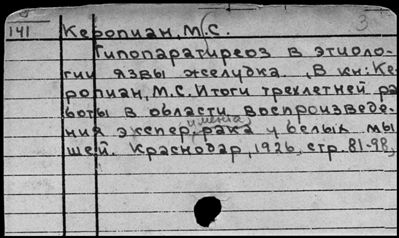 3
141 Керопиан, М.С.
Гипопаратиреоз в этиоло-
гии язвы желудка. В кн: Ке-
ропиан, М.С. Итоги трехлетней ра
боты в области воспроизведе-
ния экспер. имента рака у белых мы
шей. Краснодар, 1926, стр. 81-98,